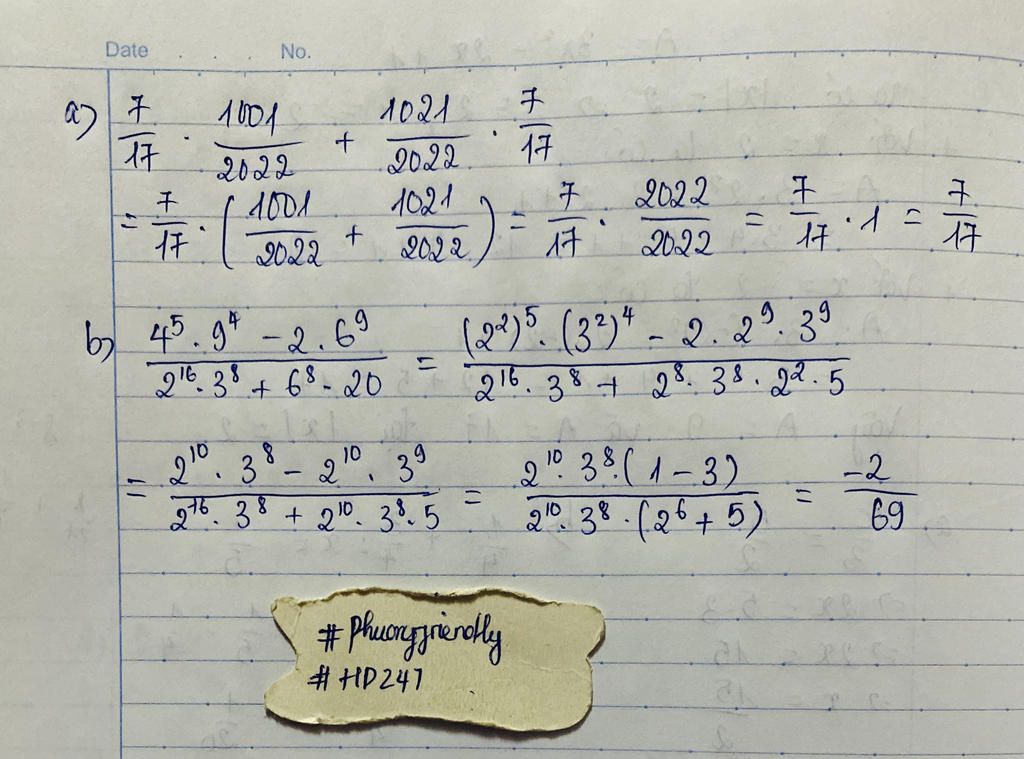 Date . . . . No.
a) 7/17 · 1001/2022 + 1021/2022 · 7/17
= 7/17 · (1001/2022 + 1021/2022) = 7/17 · 2022/2022 = 7/17 · 1 = 7/17
b) (4⁵ · 9⁴ - 2 · 6⁹)/(2¹⁶ · 3⁸ + 6⁸ · 20) = ((2²)⁵ · (3²)⁴ - 2 · 2⁹ · 3⁹)/(2¹⁶ · 3⁸ + 2⁸ · 3⁸ · 2² · 5)
= (2¹⁰ · 3⁸ - 2¹⁰ · 3⁹)/(2¹⁶ · 3⁸ + 2¹⁰ · 3⁸ · 5) = (2¹⁰ · 3⁸ · (1 - 3))/(2¹⁰ · 3⁸ · (2⁶ + 5)) = -2/69
#HD247